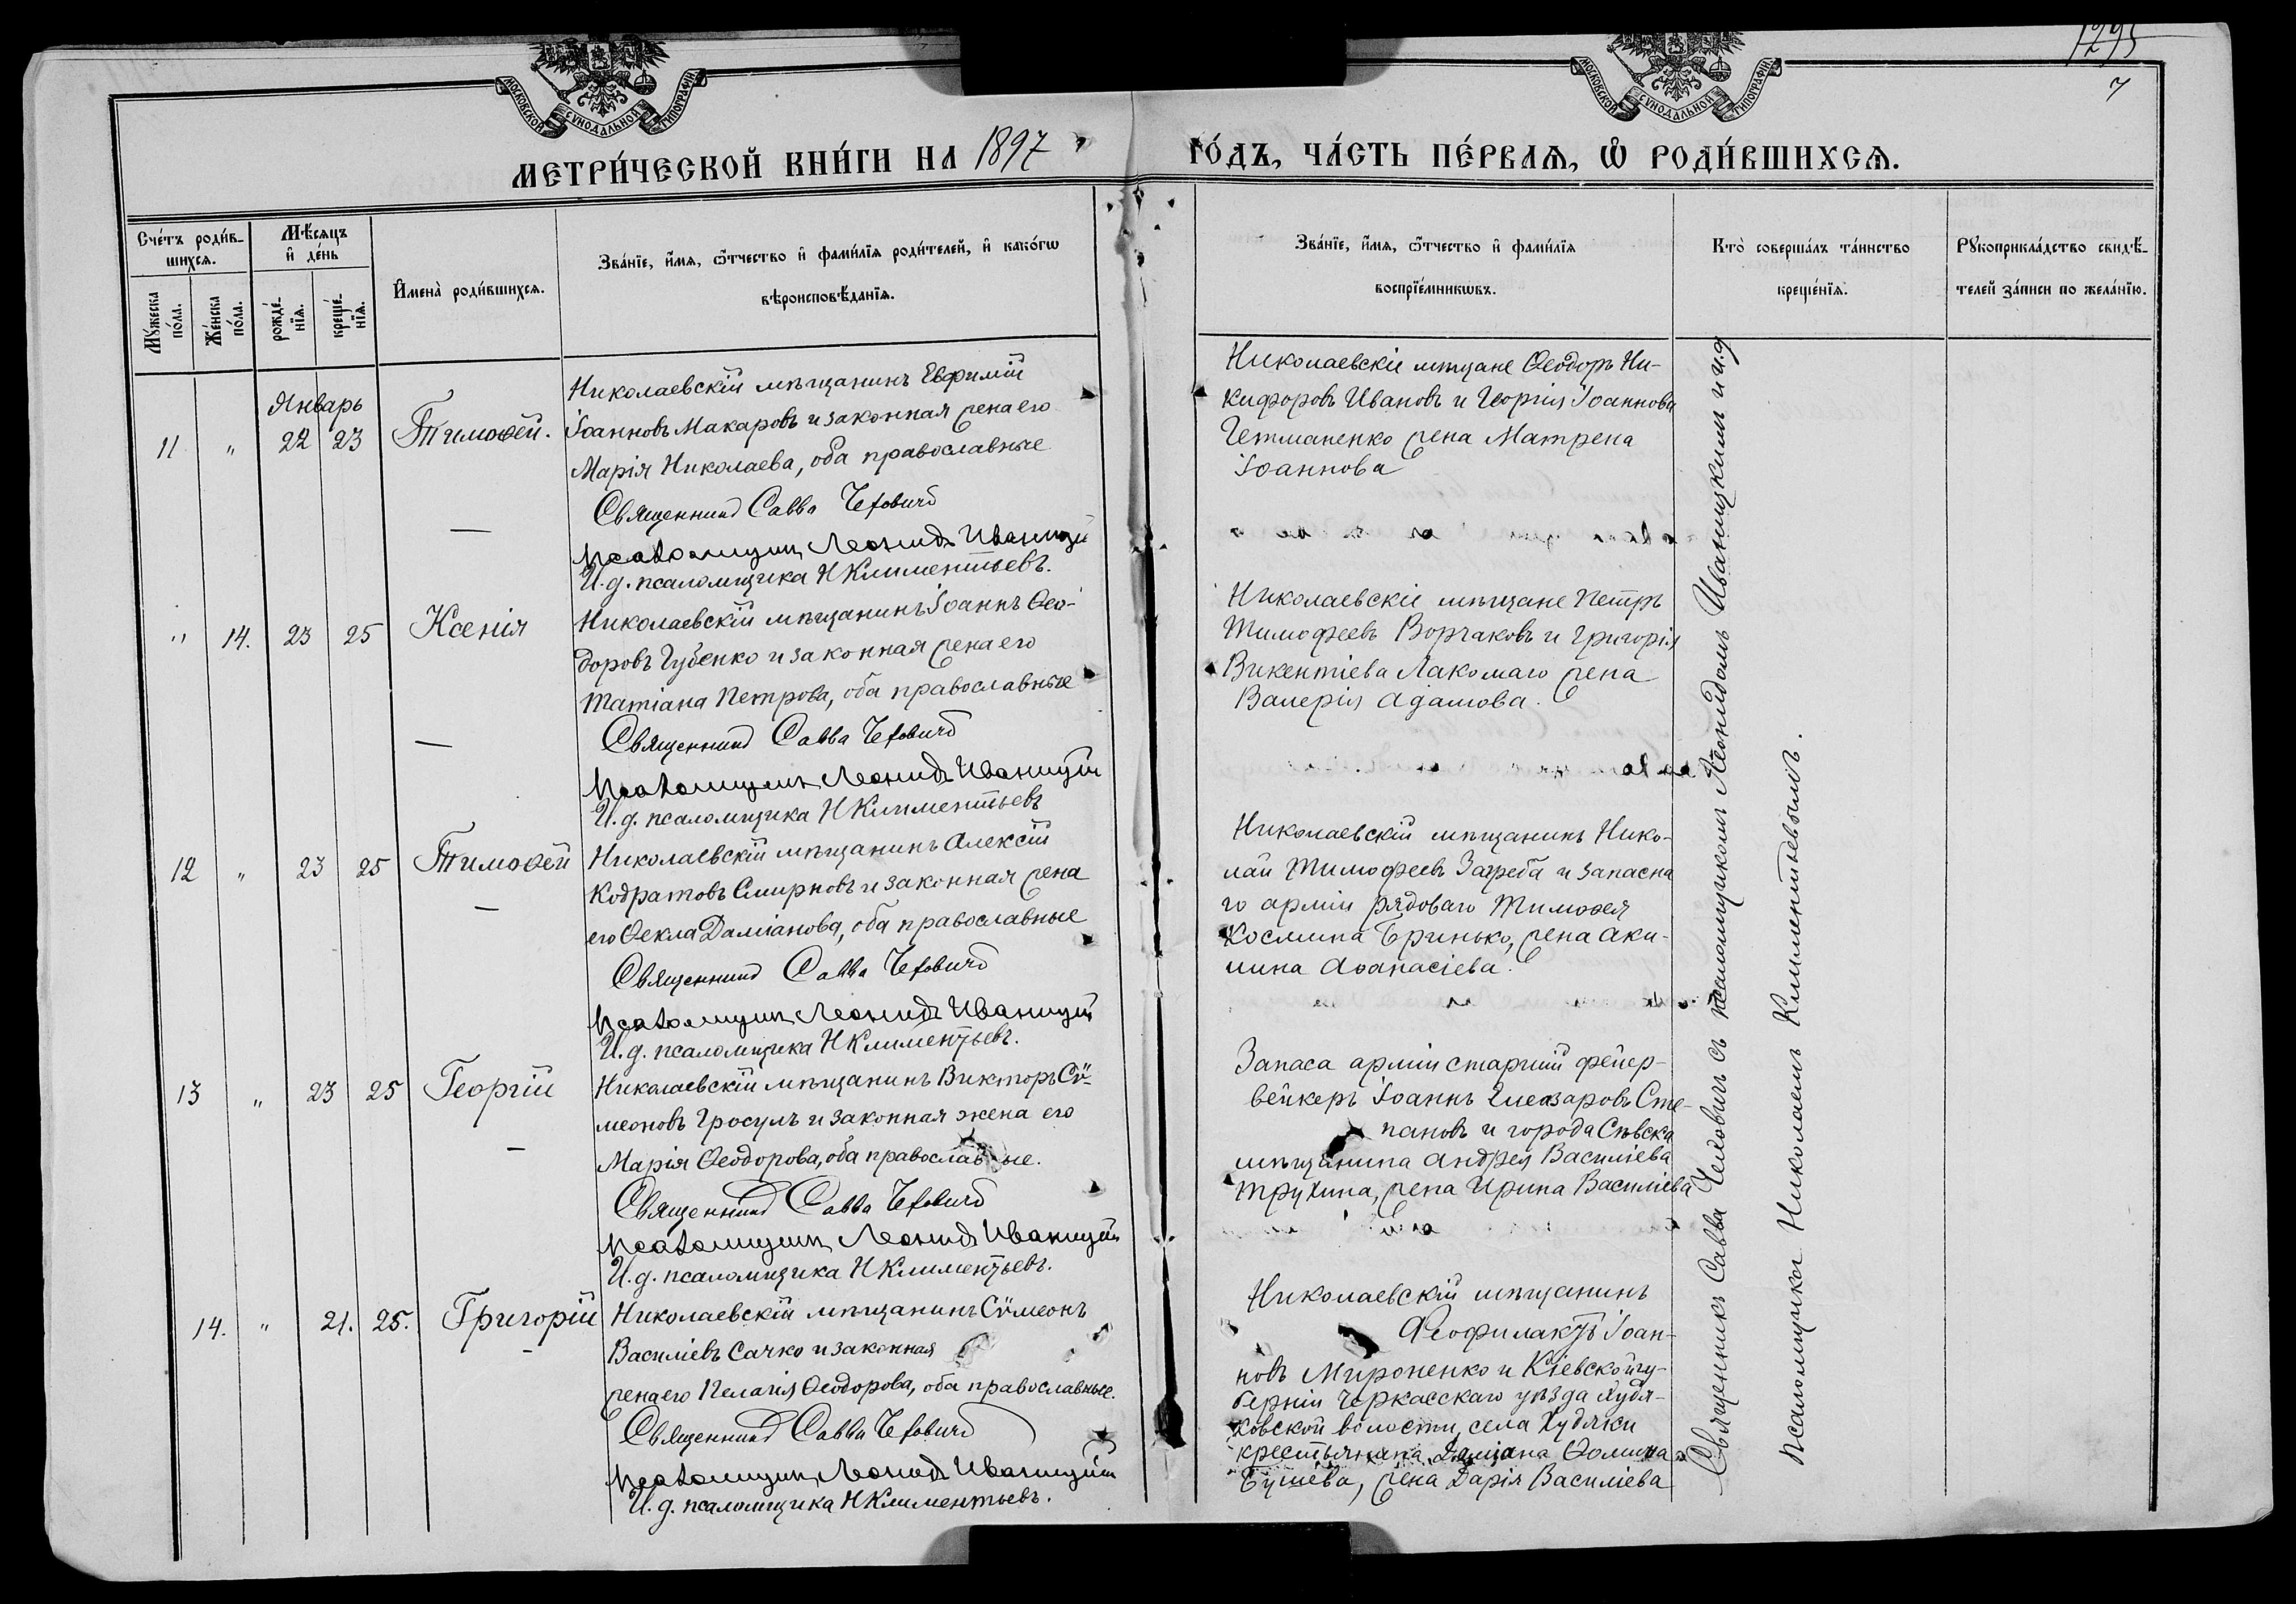 1295
7
МОСКОВСКОЙ СѴНОДАЛЬНОЙ ТИПОГРАФІИ
МОСКОВСКОЙ СѴНОДАЛЬНОЙ ТИПОГРАФІИ
МЕТРИ́ЧЕСКОЙ КНИ́ГИ НА 1897 ГО́ДЪ, ЧА́СТЬ ПЕ́РВАѦ, Ѡ҆ РОДИ́ВШИХСѦ.
Сче́тъ роди́в-
шихсѧ.
Мꙋ́жеска по́ла.
Же́нска по́ла.
Мѣ́сѧцъ и҆ де́нь
рожде́-
нїѧ.
креще́-
нїѧ.
И҆мена̀ роди́вшихсѧ.
Зва́нїе, и҆́мѧ, ѻ҆́тчество и҆ фами́лїѧ роди́телей, и҆ како́гѡ
вѣроисповѣ́данїѧ.
Зва́нїе, и҆́мѧ, ѻ҆́тчество и҆ фами́лїѧ
воспрїе́мникѡвъ.
Кто̀ соверша́лъ та́инство
креще́нїѧ.
Рꙋкоприкла́дство свидѣ́-
телей за́писи по жела́нїю.
Январь
11 " 22 23 Тимоѳей.
Николаевскій мѣщанинъ Евфимій
Іоанновъ Макаровъ и законная жена его
Марія Николаева, оба православные
Священникъ Савва Чехович
Псаломщикъ Леонидъ Иваницкій
И. д. псаломщика Н Климентьевъ.
Николаевскіе мѣщане Ѳеодоръ Ни-
кифоровъ Ивановъ и Георгія Іоаннова
Гетманенко жена Матрена
Іоаннова
" 14. 23 25 Ксенія
Николаевскій мѣщанинъ Іоаннъ Ѳео-
доровъ Губенко и законная жена его
Татіана Петрова, оба православные
Священникъ Савва Чехович
Псаломщикъ Леонидъ Иваницкій
И. д. псаломщика Н Климентьевъ
Николаевскіе мѣщане Петръ
Тимофеевъ Ворчаковъ и Григорія
Викентіева Лакомаго жена
Валерія Адамова.
12 " 23 25 Тимоѳей
Николаевскій мѣщанинъ Алексій
Кодратовъ Смирновъ и законная жена
его Ѳекла Даміанова, оба православные
Священникъ Савва Чехович
Псаломщикъ Леонидъ Иваницкій
И. д. псаломщика Н Климентьевъ.
Николаевскій мѣщанинъ Нико-
лай Тимофеевъ Загреба и запасна
го арміи рядоваго Тимоѳея
Космина Бринько, жена Аки-
лина Аѳанасіева.
13 " 23 25 Георгій
Николаевскій мѣщанинъ Викторъ Сѵ-
меоновъ Гросулъ и законная жена его
Марія Ѳеодорова, оба православные.
Священникъ Савва Чехович
Псаломщикъ Леонидъ Иваницкій
И. д. псаломщика Н Климентьевъ.
Запаса арміи старшій фейер-
вейкеръ Іоаннъ Елеазаровъ Сте-
пановъ и города Сѣвска
мѣщанина Андрея Василіева
Трухина, жена Ирина Василіева
14. " 21. 25. Григорій
Николаевскій мѣщанинъ Сѵмеонъ
Василіевъ Сачко и законная
жена его Пелагія Ѳеодорова, оба православные.
Священникъ Савва Чехович
Псаломщикъ Леонидъ Иваницкій
И. д. псаломщика Н Климентьевъ.
Николаевскій мѣщанинъ
Ѳеофилактъ Іоан-
новъ Мироненко и Кіевской гу-
берніи Черкасскаго уѣзда Худя-
ковской волости, села Худяки
крестьянина Даміана Ѳомина
жена Дарія Василіева
Священникъ Савва Чеховичъ съ псаломщикомъ Леонидомъ Иваницкимъ и и. д.
псаломщика Николаемъ Климентьевымъ.